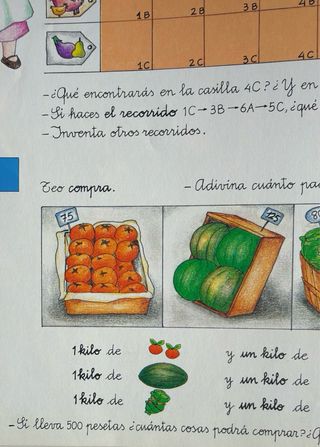 1B 2B 3B 4B
1C 2C 3C 4C
-¿Qué encontrarás en la casilla 4C? ¿Y en
-Si haces el recorrido 1C→3B→6A→5C, ¿qué
-Inventa otros recorridos.
Teo compra.
-Adivina cuánto pa
75
125
1 kilo de y un kilo de
1 kilo de y un kilo de
1 kilo de y un kilo de
-Si lleva 500 pesetas ¿cuántas cosas podrá comprar? ¿